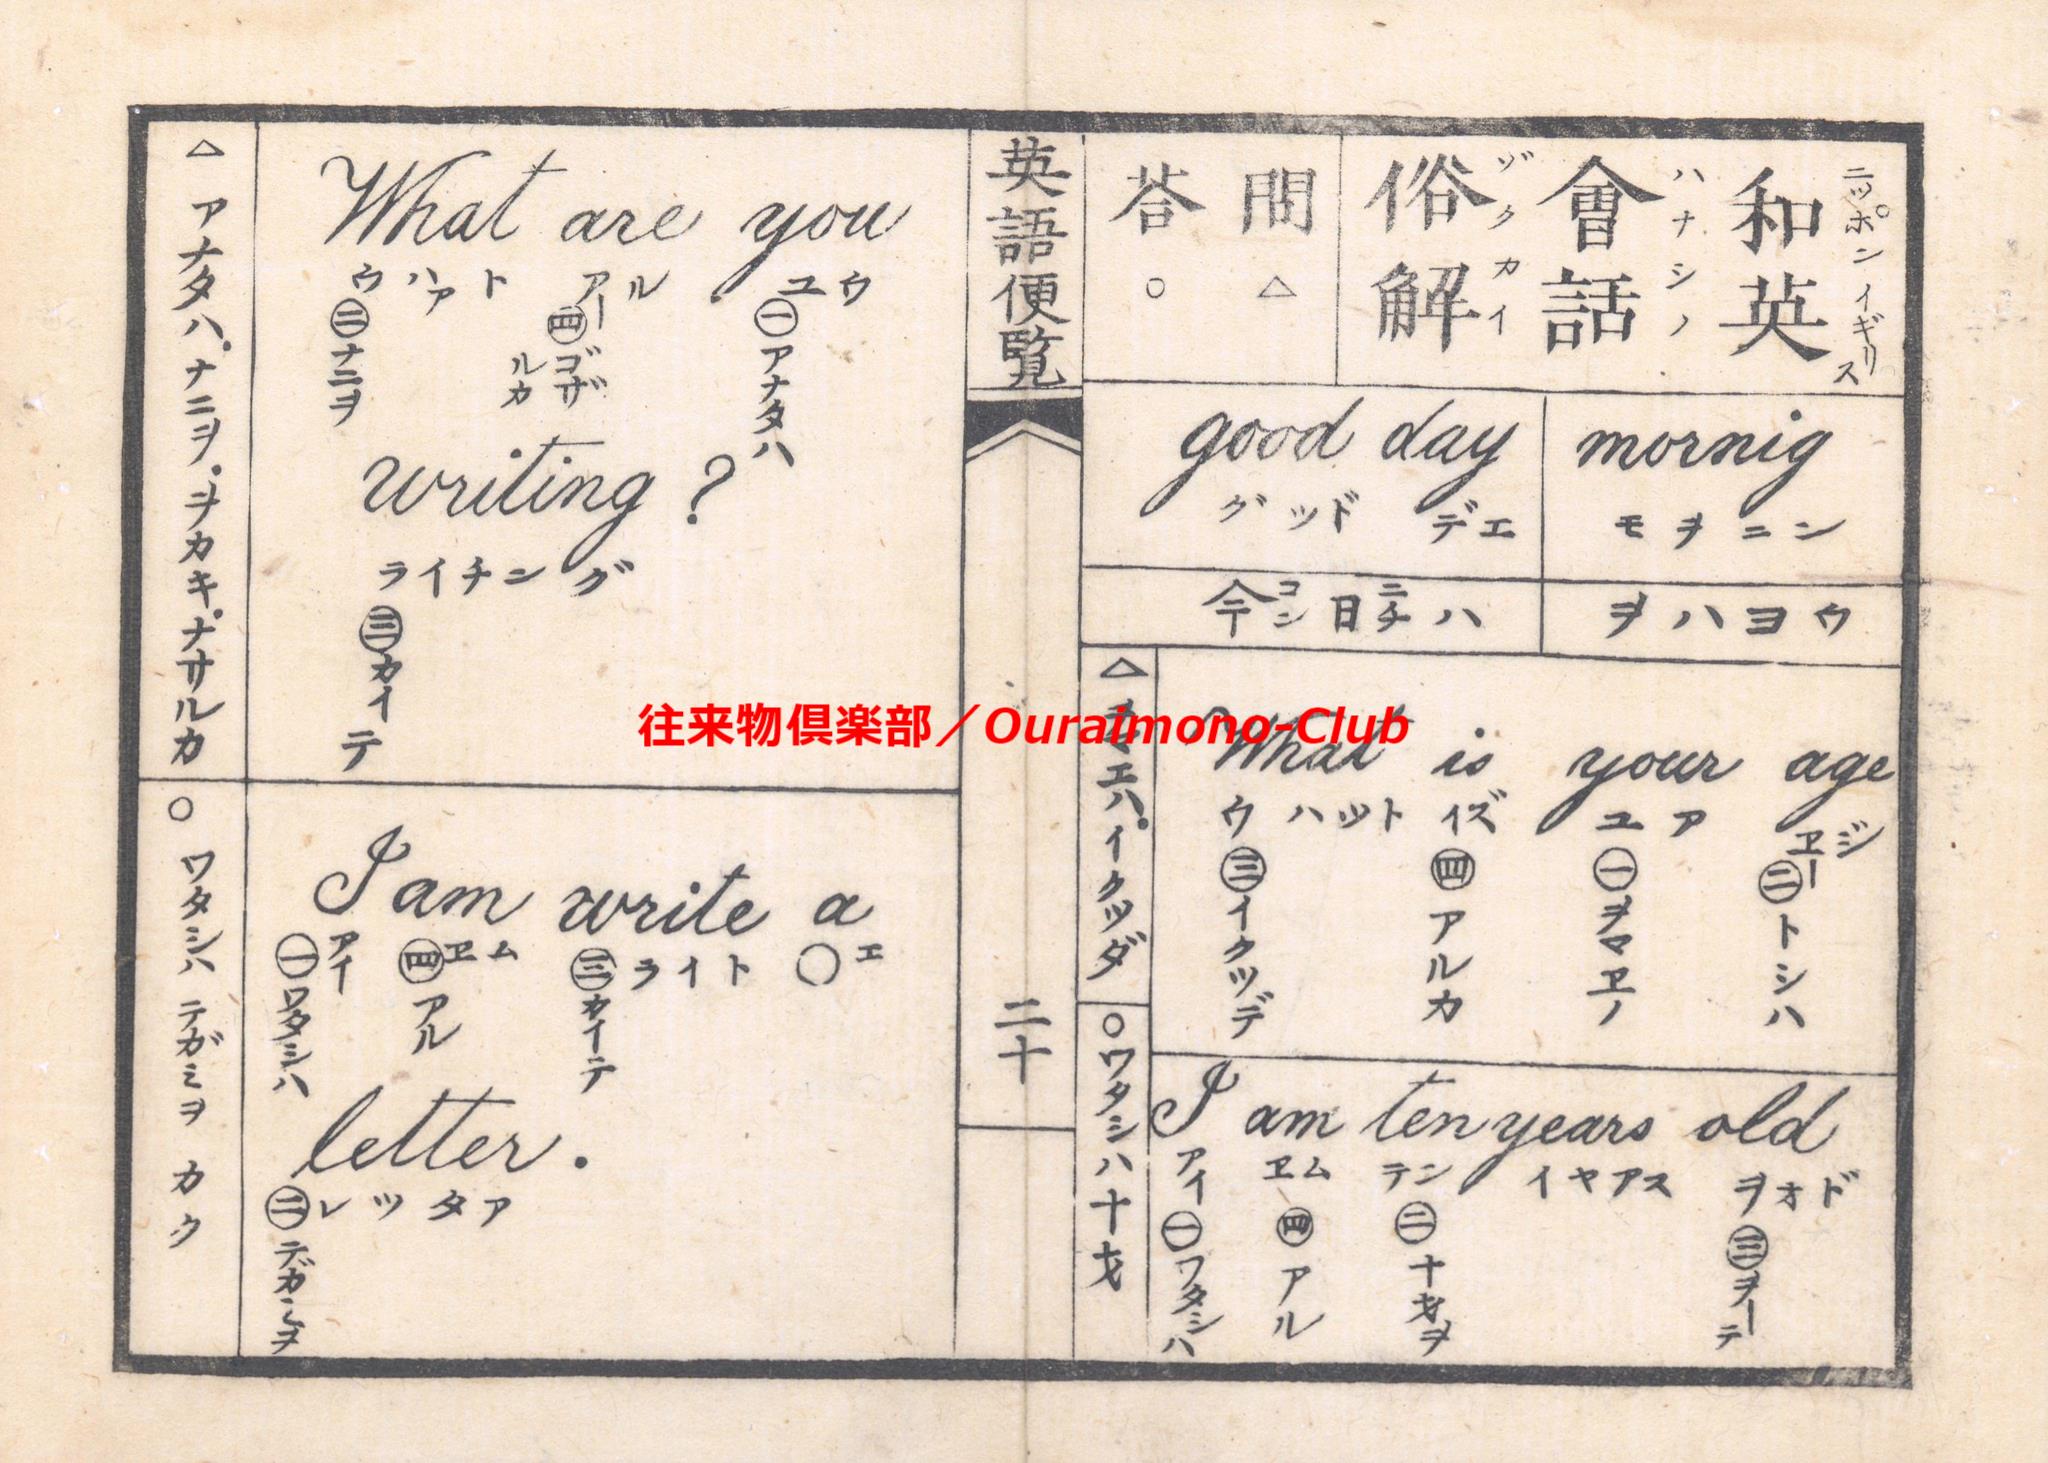 和英
ニッポンイギリス
會話
ハナシノ
俗解
ゾクカイ
問 △
答 ○
mornig
モヲニン
ヲハヨウ
good day
グッド デエ
今日ハ
コンニチ
What is your age
ウハット イズ ユア ヱージ
㊂イクツデ ㊃アルカ ㊀ヲマヱノ ㊁トシハ
エハイクツダ
I am ten years old
アイ ヱム テン イヤアス ヲオド
㊀ワタシハ ㊃アル ㊁十才ヲ ㊂ヲーテ
○ワタシハ十才
英語便覧
二十
What are you
ウハアト アール ユウ
㊁ナニヲ ㊃ゴザルカ ㊀アナタハ
writing ?
ライチング
㊂カイテ
△アナタハ ナニヲ ヲカキ ナサルカ
I am write a
アイ ヱム ライト エ
㊀ワタシハ ㊃アル ㊂カイテ ○
letter .
レッタア
㊁テガミヲ
○ワタシハ テガミヲ カク
往来物倶楽部／Ouraimono-Club